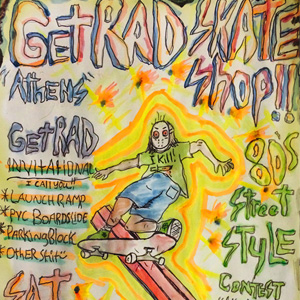 GET RAD SKATE
SHOP!!
"ATHENS"
GETRAD
INVITATIONAL
*LAUNCH RAMP
*PVC BOARDSLIDE
*PARKINGBLOCK
*OTHER SHIT
SAT
I Kill!
80's
Street
STYLE
CONTEST